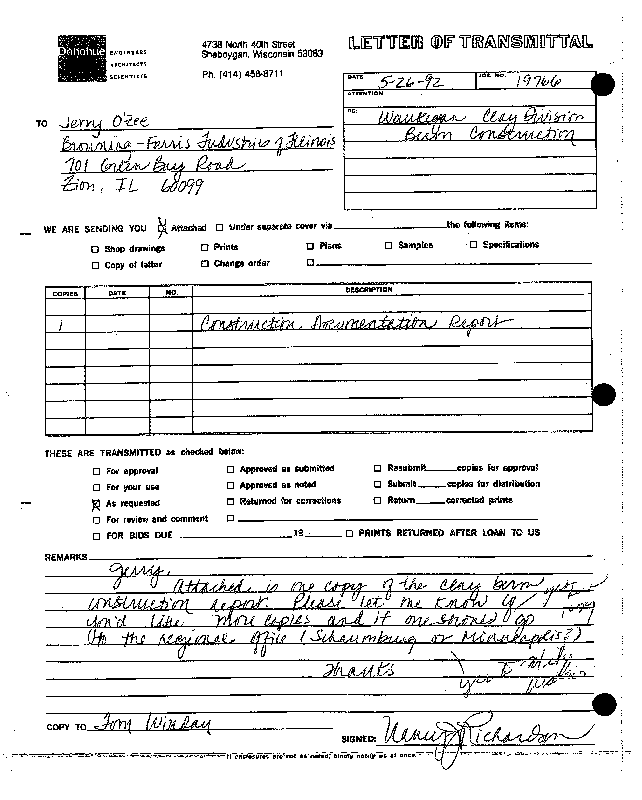 Donohue
ENGINEERS
ARCHITECTS
SCIENTISTS
4738 North 40th Street
Sheboygan, Wisconsin 53083
Ph. (414) 458-8711
LETTER OF TRANSMITTAL
DATE 5-26-92 JOB NO. 19766
ATTENTION
RE: Waukegan Clay Division
Berm Construction
TO Jerry O'Zee
Browning-Ferris Industries of Illinois
701 Green Bay Road
Zion, IL 60099
WE ARE SENDING YOU ☒ Attached ☐ Under separate cover via the following items:
☐ Shop drawings ☐ Prints ☐ Plans ☐ Samples ☐ Specifications
☐ Copy of letter ☐ Change order ☐
COPIES DATE NO. DESCRIPTION
1 Construction Documentation Report
THESE ARE TRANSMITTED as checked below:
☐ For approval ☐ Approved as submitted ☐ Resubmit copies for approval
☐ For your use ☐ Approved as noted ☐ Submit copies for distribution
☒ As requested ☐ Returned for corrections ☐ Return corrected prints
☐ For review and comment ☐
☐ FOR BIDS DUE 19 ☐ PRINTS RETURNED AFTER LOAN TO US
REMARKS Jerry,
Attached is one copy of the clay berm
construction report. Please let me know if
you'd like more copies and if one should go
to the regional office (Schaumburg or Minneapolis?)
Thanks
yes
COPY TO Tom
SIGNED: Nancy J Richardson
If enclosures are not as noted, kindly notify us at once.